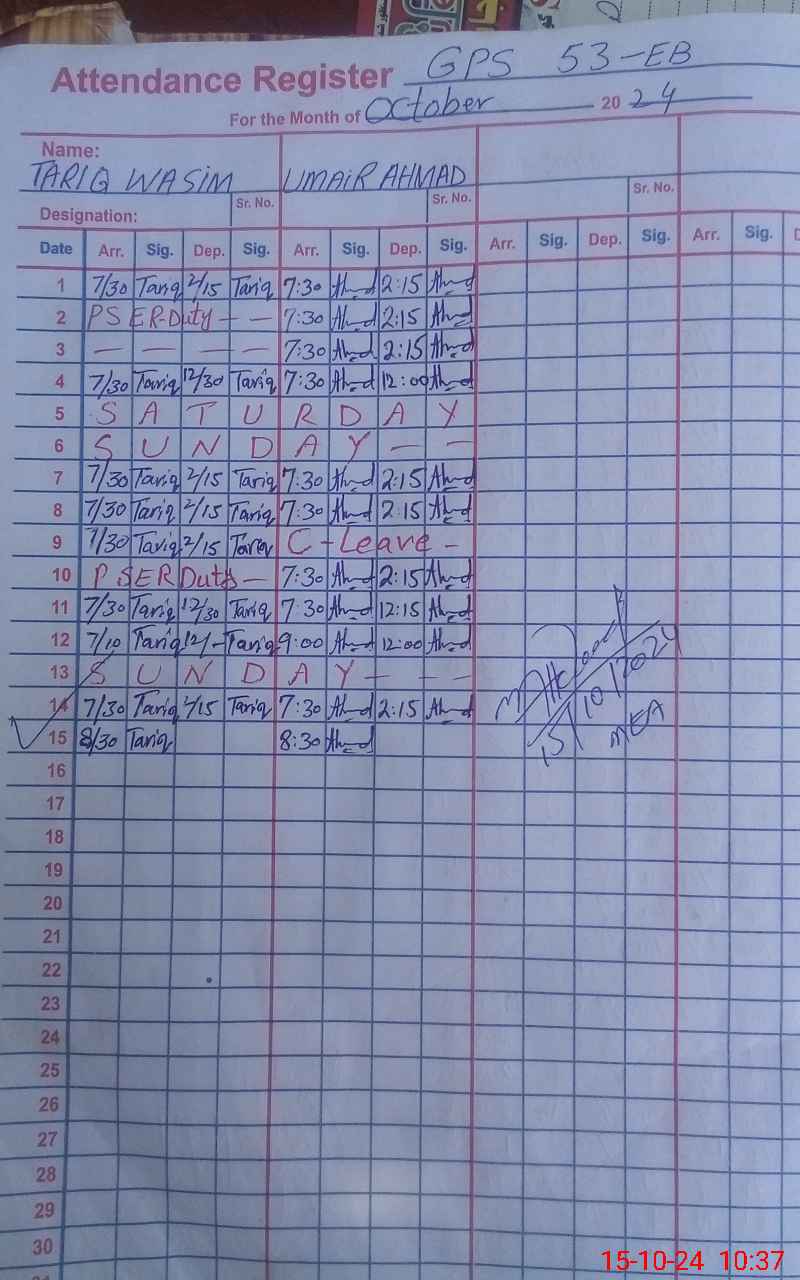 Attendance Register GPS 53-EB
For the Month of October 2024
Name:
TARIQ WASIM UMAIR AHMAD
Sr. No. Sr. No. Sr. No.
Designation:
Date Arr. Sig. Dep. Sig. Arr. Sig. Dep. Sig. Arr. Sig. Dep. Sig. Arr. Sig.
1 7/30 Tariq 2/15 Tariq 7:30 Ahmd 2:15 Ahmd
2 PSER-Duty - - 7:30 Ahmd 2:15 Ahmd
3 - - - - 7:30 Ahmd 2:15 Ahmd
4 7/30 Tariq 12/30 Tariq 7:30 Ahmd 12:00 Ahmd
5 SATURDAY
6 SUNDAY - -
7 7/30 Tariq 2/15 Tariq 7:30 Ahmd 2:15 Ahmd
8 7/30 Tariq 2/15 Tariq 7:30 Ahmd 2:15 Ahmd
9 7/30 Tariq 2/15 Tariq C-Leave -
10 PSER Duty - 7:30 Ahmd 2:15 Ahmd
11 7/30 Tariq 12/30 Tariq 7:30 Ahmd 12:15 Ahmd
12 7/10 Tariq 12/- Tariq 9:00 Ahmd 12:00 Ahmd
13 SUNDAY - - -
14 7/30 Tariq 2/15 Tariq 7:30 Ahmd 2:15 Ahmd
15 8/30 Tariq 8:30 Ahmd
15/10/2024
MEA
16
17
18
19
20
21
22
23
24
25
26
27
28
29
30
15-10-24 10:37